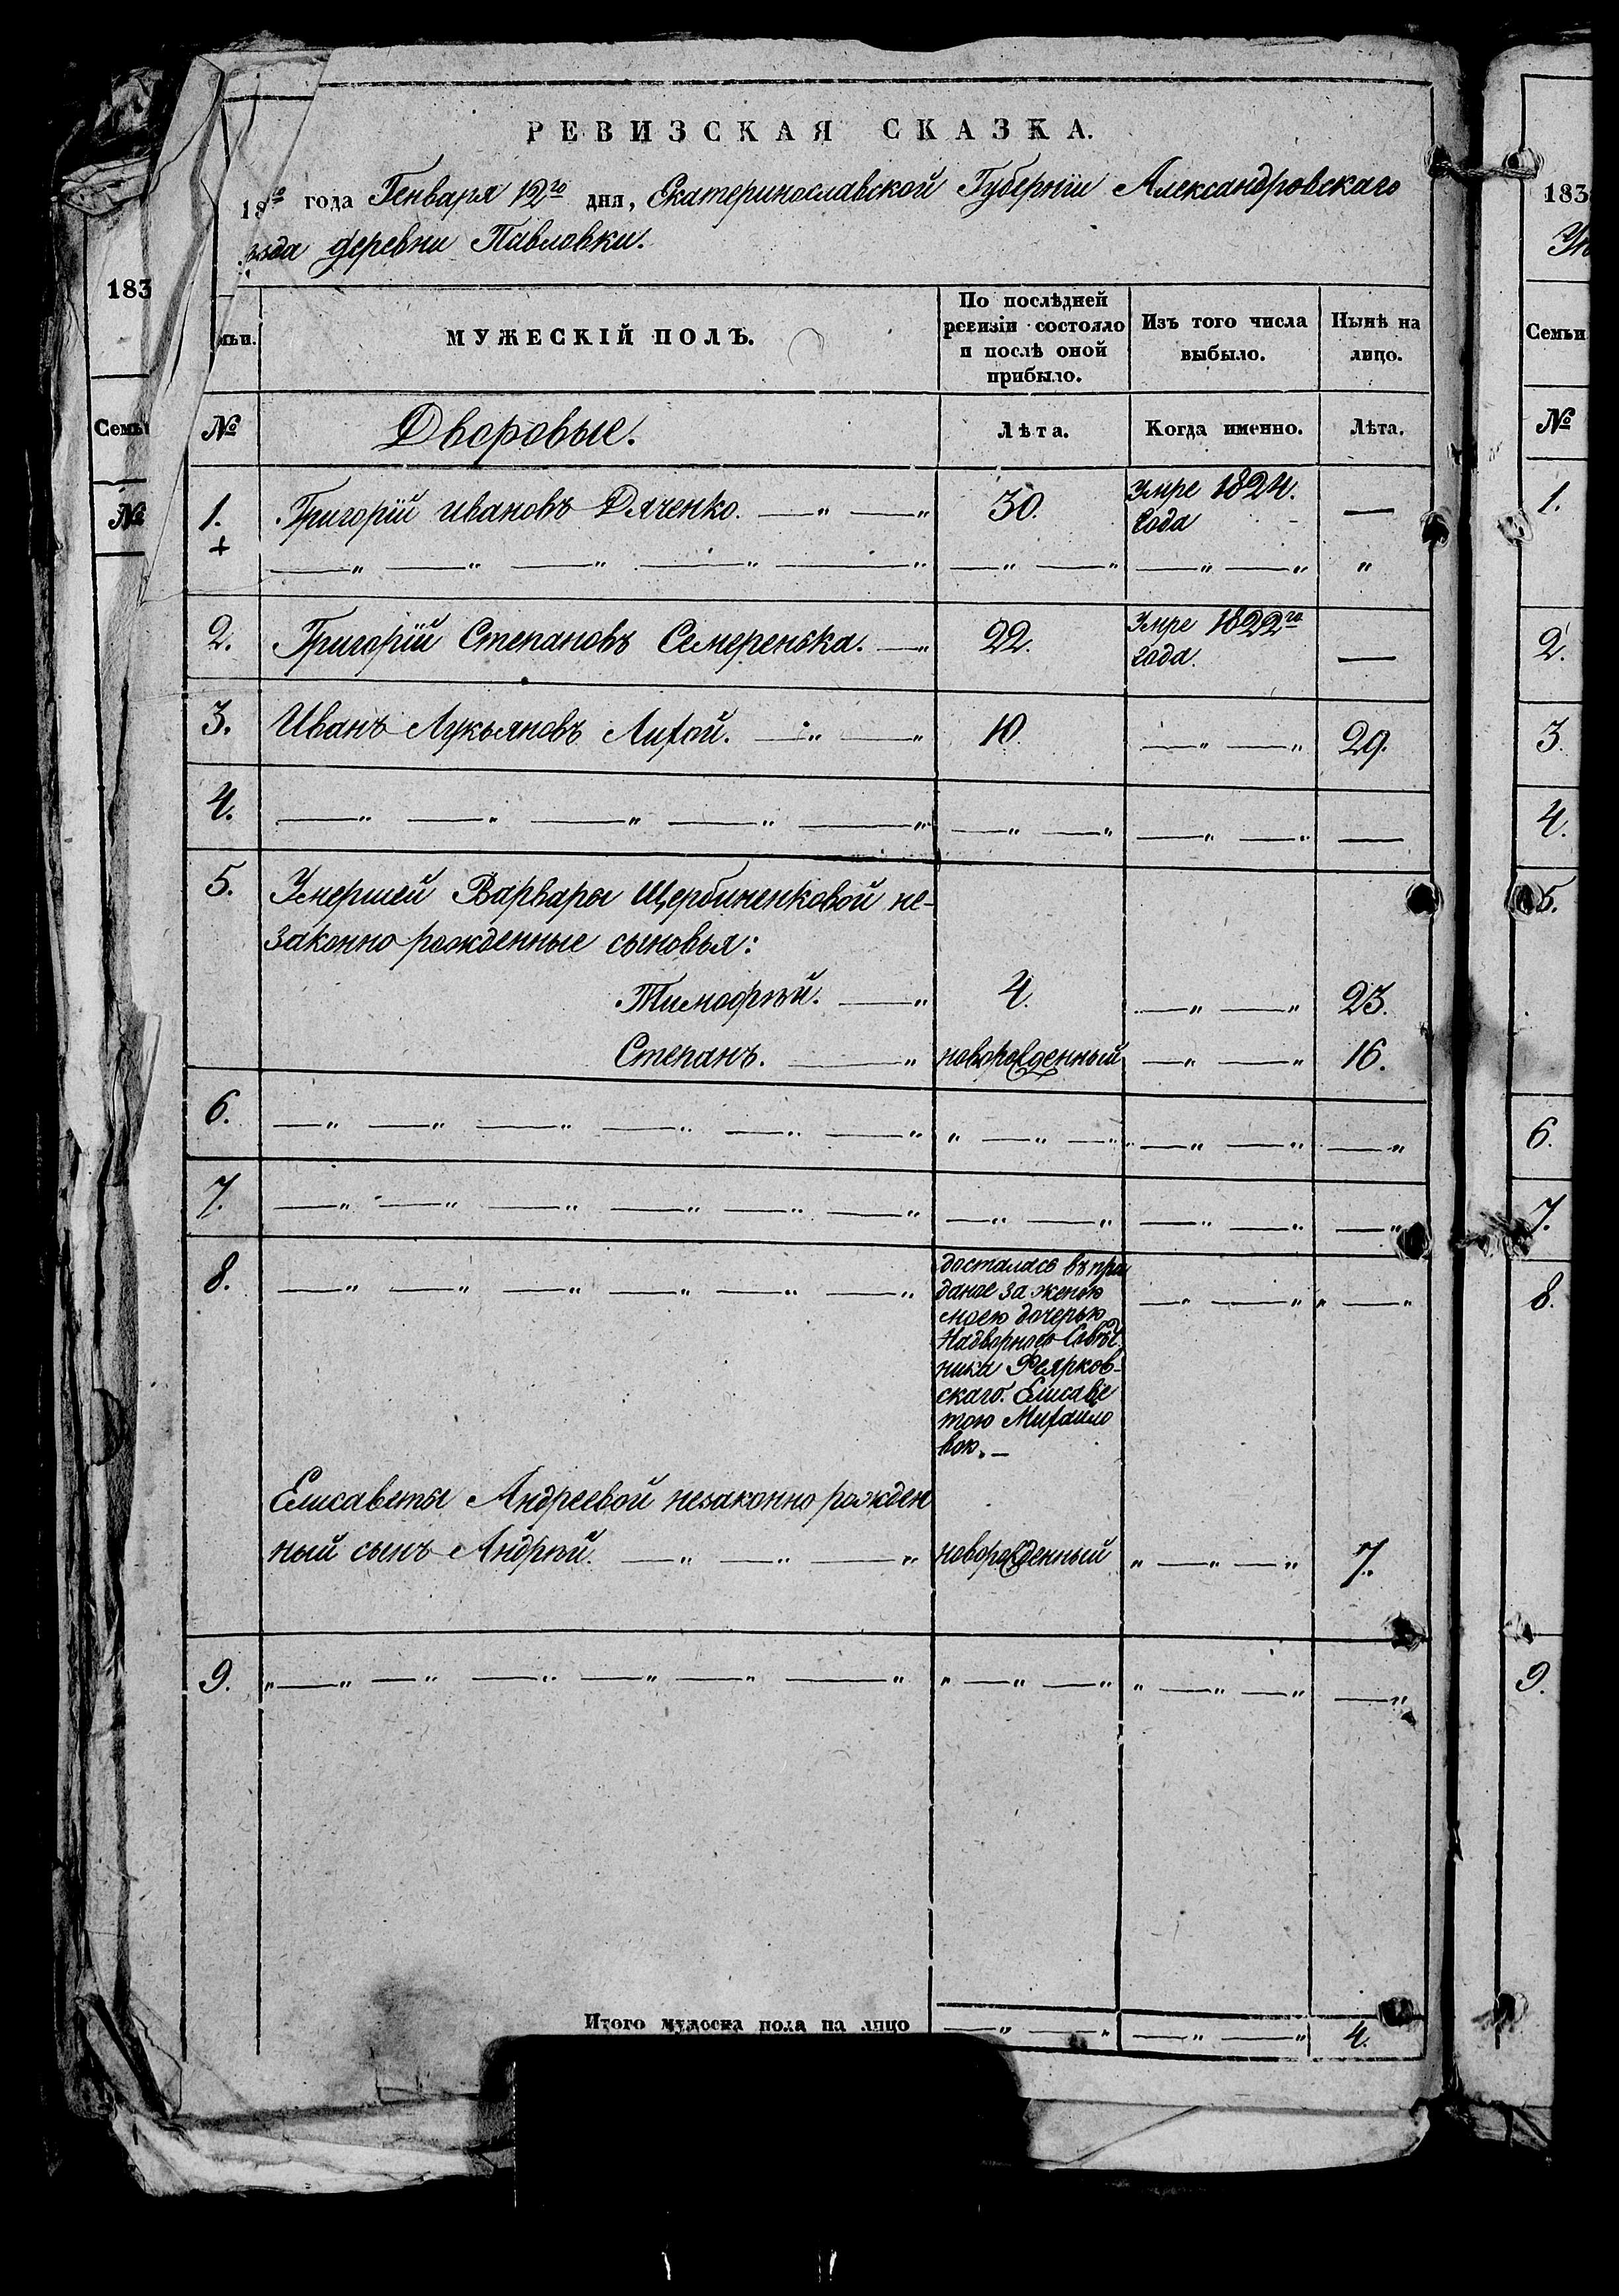 РЕВИЗСКАЯ СКАЗКА.
года Генваря 12го дня, Екатеринославской Губерніи Александровскаго
деревни Павловки.
183
Семьи
№
МУЖЕСКІЙ ПОЛЪ.
По послѣдней ревизіи состояло и послѣ оной прибыло.
Изъ того числа выбыло.
Нынѣ на лицо.
№
Дворовые.
Лѣта.
Когда именно.
Лѣта.
1. Григорій Ивановъ Дяченко. — „ — „ 30. Умре 1824.
года —
+
— „ — „ — „ — „ — „ — „ — „ — „ — „ „
2. Григорій Степановъ Семеренька. — „ 22. Умре 1822го
года. —
3. Иванъ Лукьяновъ Лихой. — „ — „ 10. — „ — „ 29.
4. — „ — „ — „ — „ — „ — „ — „ — „ — „ —
5. Умершей Варвары Щербиненковой не-
законно рожденные сыновья:
Тимофѣй. — „ 4. — „ — „ 23.
Степанъ. — „ новорожденный — „ — „ 16.
6. — „ — „ — „ — „ — „ — „ „ — „ — „ — „ — „ — „
7. — „ — „ — „ — „ — „ — „ — „ — „ — „ — „ — „
8. — „ — „ — „ — „ — „ — „ досталась въ при
даное за женою — „ — „ „ — „
моею дочерью
Надворнаго Совѣт
ника
скаго. Елисаве
тою Михайло
вою. —
Елисаветы Андреевой незаконно рожден
ный сынъ Андрѣй. — „ — „ — „ новорожденный „ — „ — „ 7.
9. „ — „ — „ — „ — „ — „ — „ „ — „ — „ „ — „ — „ — „
Итого мужеска пола на лицо — „ — „ — „ — „ 4.
183
Семьи
№
1.
2.
3.
4.
5.
6.
7.
8.
9.